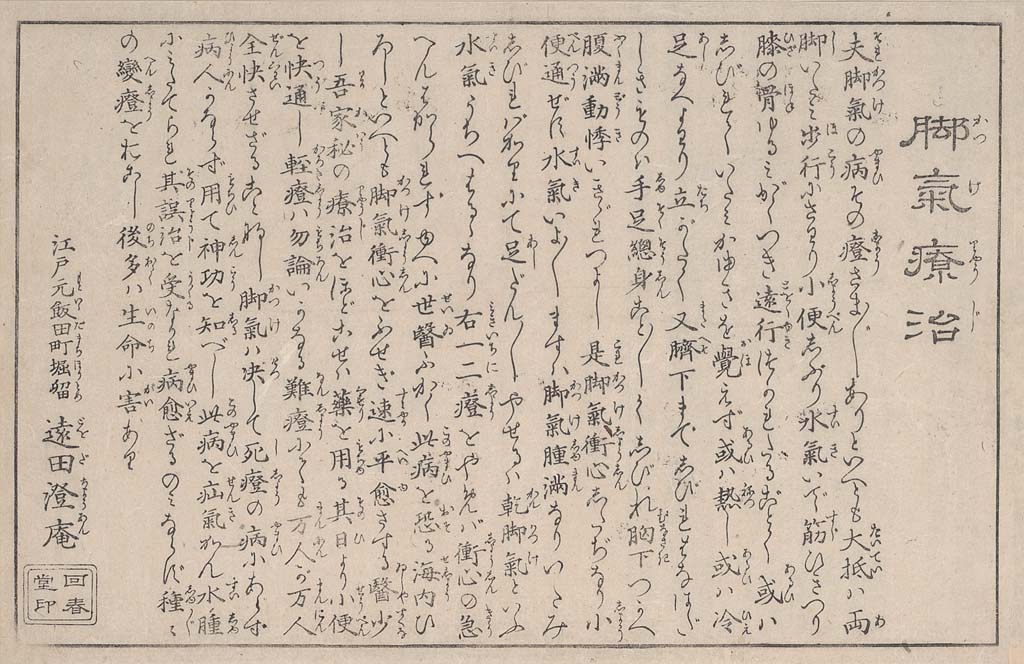 脚氣療治
夫脚氣の病その證さま〴〵ありといへども大抵ハ両
脚いたミ歩行にさはり小便しぶり水氣いで筋ひきつり
膝の骨ゆるミがくつき遠行つかれたるごとく或ハ
しびれていたミかゆきを覺えず或ハ熱し或ハ冷
足なへよわり立がたく又臍下までしびれはなはだ
しきものハ手足總身ことごとくしびれ胸下つかへ
腹満動悸いきぎれつよし是脚氣衝心したぢなり小
便通ぜず水氣いよ〳〵ますハ脚氣腫満なりいたみ
しびればかりにて足だん〳〵やせるハ乾脚氣といふ
水氣うちへせまるなり 右一二證をやめバ衝心の急
へんはかられずゆへに世醫ふかく此病を恐る海内ひ
ろしといへども脚氣衝心をふせぎ速に平愈さする醫少
し吾家秘の療治をほどこせハ藥を用る其日より小便
を快通し輕證ハ勿論いかなる難證にても万人が万人
全快させざること稀し 脚氣ハ决して死證の病にあらず
病人かならず用て神功を知べし此病を疝氣かん水腫
にミたてられ其誤治を受なかれ病愈ざるのミならず種々
の變證をおこし後多ハ生命に害あり
江戸元飯田町堀留 遠田澄庵
回春堂印